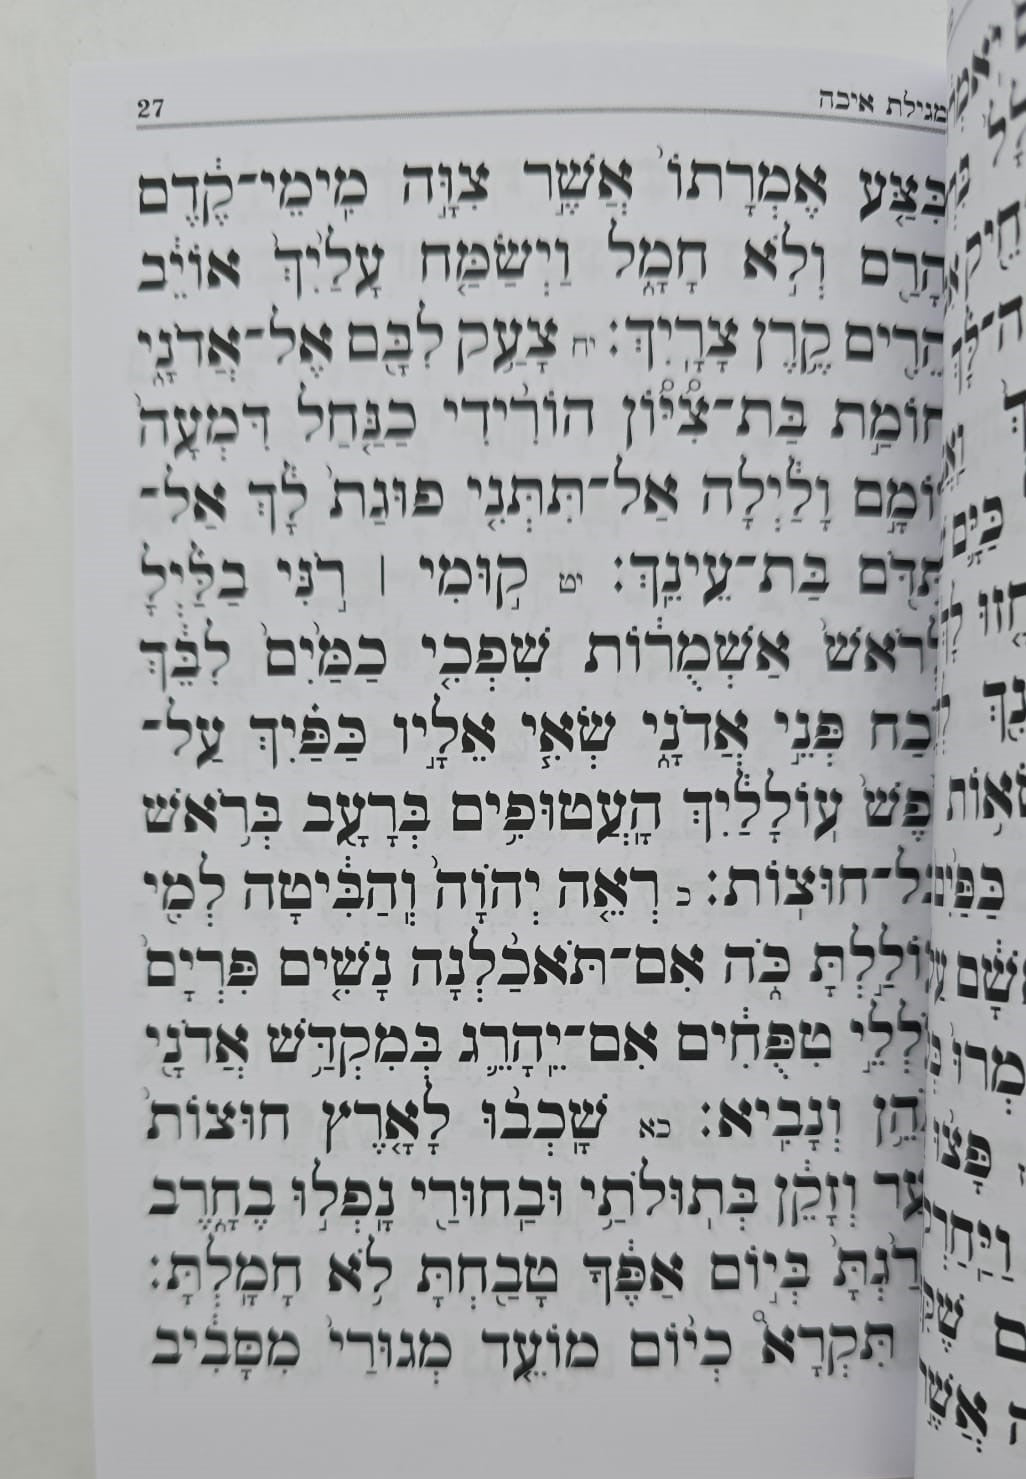 27 מגילת איכה
בִּצַּ֤ע אֶמְרָתוֹ֙ אֲשֶׁ֣ר צִוָּ֣ה מִֽימֵי־קֶ֔דֶם
הָרַ֖ס וְלֹ֣א חָמָ֑ל וַיְשַׂמַּ֤ח עָלַ֙יִךְ֙ אוֹיֵ֔ב
הֵרִ֖ים קֶ֥רֶן צָרָֽיִךְ׃ יח צָעַ֥ק לִבָּ֖ם אֶל־אֲדֹנָ֑י
חוֹמַ֣ת בַּת־צִ֠יּ֠וֹן הוֹרִ֨ידִי כַנַּ֤חַל דִּמְעָה֙
יוֹמָ֣ם וָלַ֔יְלָה אַֽל־תִּתְּנִ֤י פוּגַת֙ לָ֔ךְ אַל־
תִּדֹּ֖ם בַּת־עֵינֵֽךְ׃ יט ק֣וּמִי ׀ רֹ֣נִּי בַלַּ֗יְלָ
לְרֹאשׁ֙ אַשְׁמֻר֔וֹת שִׁפְכִ֤י כַמַּ֙יִם֙ לִבֵּ֔ךְ
נֹ֖כַח פְּנֵ֣י אֲדֹנָ֑י שְׂאִ֧י אֵלָ֣יו כַּפַּ֗יִךְ עַל־
נֶ֙פֶשׁ֙ עֽוֹלָלַ֔יִךְ הָעֲטוּפִ֥ים בְּרָעָ֖ב בְּרֹ֥אשׁ
כׇּל־חוּצֽוֹת׃ כ רְאֵ֤ה יְהֹוָה֙ וְֽהַבִּ֔יטָה לְמִ֖י
עוֹלַ֣לְתָּ כֹּ֑ה אִם־תֹּאכַ֨לְנָה נָשִׁ֤ים פִּרְיָם֙
עֹֽלְלֵ֣י טִפֻּחִ֔ים אִם־יֵהָרֵ֛ג בְּמִקְדַּ֥שׁ אֲדֹנָ֖י
כֹּהֵ֥ן וְנָבִֽיא׃ כא שָׁכְב֨וּ לָאָ֤רֶץ חוּצוֹת֙
נַ֣עַר וְזָקֵ֔ן בְּתוּלֹתַ֥י וּבַחוּרַ֖י נָפְל֣וּ בֶחָ֑רֶב
הָרַ֙גְתָּ֙ בְּי֣וֹם אַפֶּ֔ךָ טָבַ֖חְתָּ לֹ֥א חָמָֽלְתָּ׃
תִּקְרָא֩ כְי֨וֹם מוֹעֵ֤ד מְגוּרַי֙ מִסָּבִ֔יב